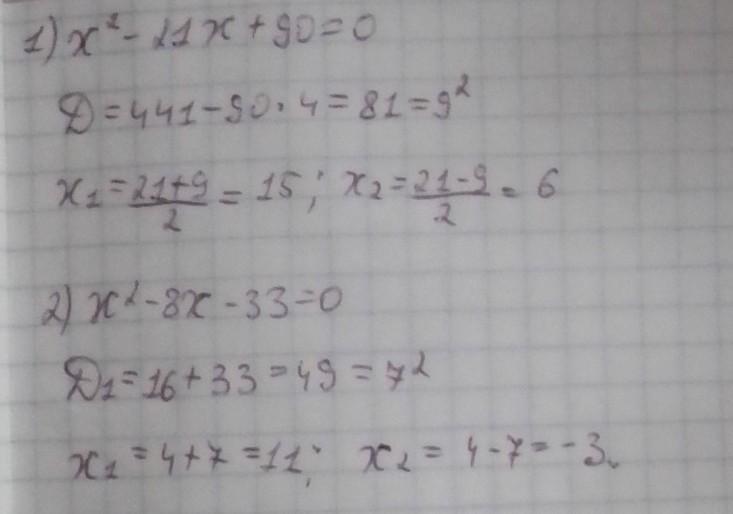 1) x² - 21x + 90 = 0
D = 441 - 90 · 4 = 81 = 9²
x₁ = (21+9)/2 = 15; x₂ = (21-9)/2 = 6
2) x² - 8x - 33 = 0
D₁ = 16 + 33 = 49 = 7²
x₁ = 4 + 7 = 11; x₂ = 4 - 7 = -3.